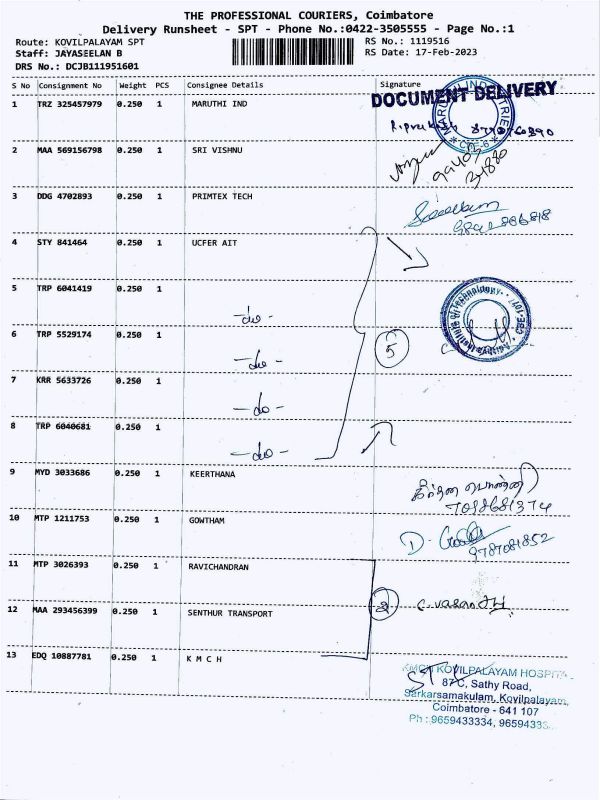 THE PROFESSIONAL COURIERS, Coimbatore
Delivery Runsheet - SPT - Phone No.:0422-3505555 - Page No.:1
Route: KOVILPALAYAM SPT RS No.: 1119516
Staff: JAYASEELAN B RS Date: 17-Feb-2023
DRS No.: DCJB111951601
S No Consignment No Weight PCS Consignee Details Signature
DOCUMENT DELIVERY
1 TRZ 325457979 0.250 1 MARUTHI IND
2 MAA 569156798 0.250 1 SRI VISHNU
3 DDG 4702893 0.250 1 PRIMTEX TECH
4 STY 841464 0.250 1 UCFER AIT
5 TRP 6041419 0.250 1
-do-
6 TRP 5529174 0.250 1 5
-do-
7 KRR 5633726 0.250 1
-do-
8 TRP 6040681 0.250 1
-do-
9 MYD 3033686 0.250 1 KEERTHANA
7088681374
10 MTP 1211753 0.250 1 GOWTHAM
9787081852
11 MTP 3026393 0.250 1 RAVICHANDRAN
12 MAA 293456399 0.250 1 SENTHUR TRANSPORT
13 EDQ 10887781 0.250 1 K M C H
KMCH KOVILPALAYAM HOSPITA
87C, Sathy Road,
Sarkarsamakulam, Kovilpalayam,
Coimbatore - 641 107
Ph :9659433334, 96594333